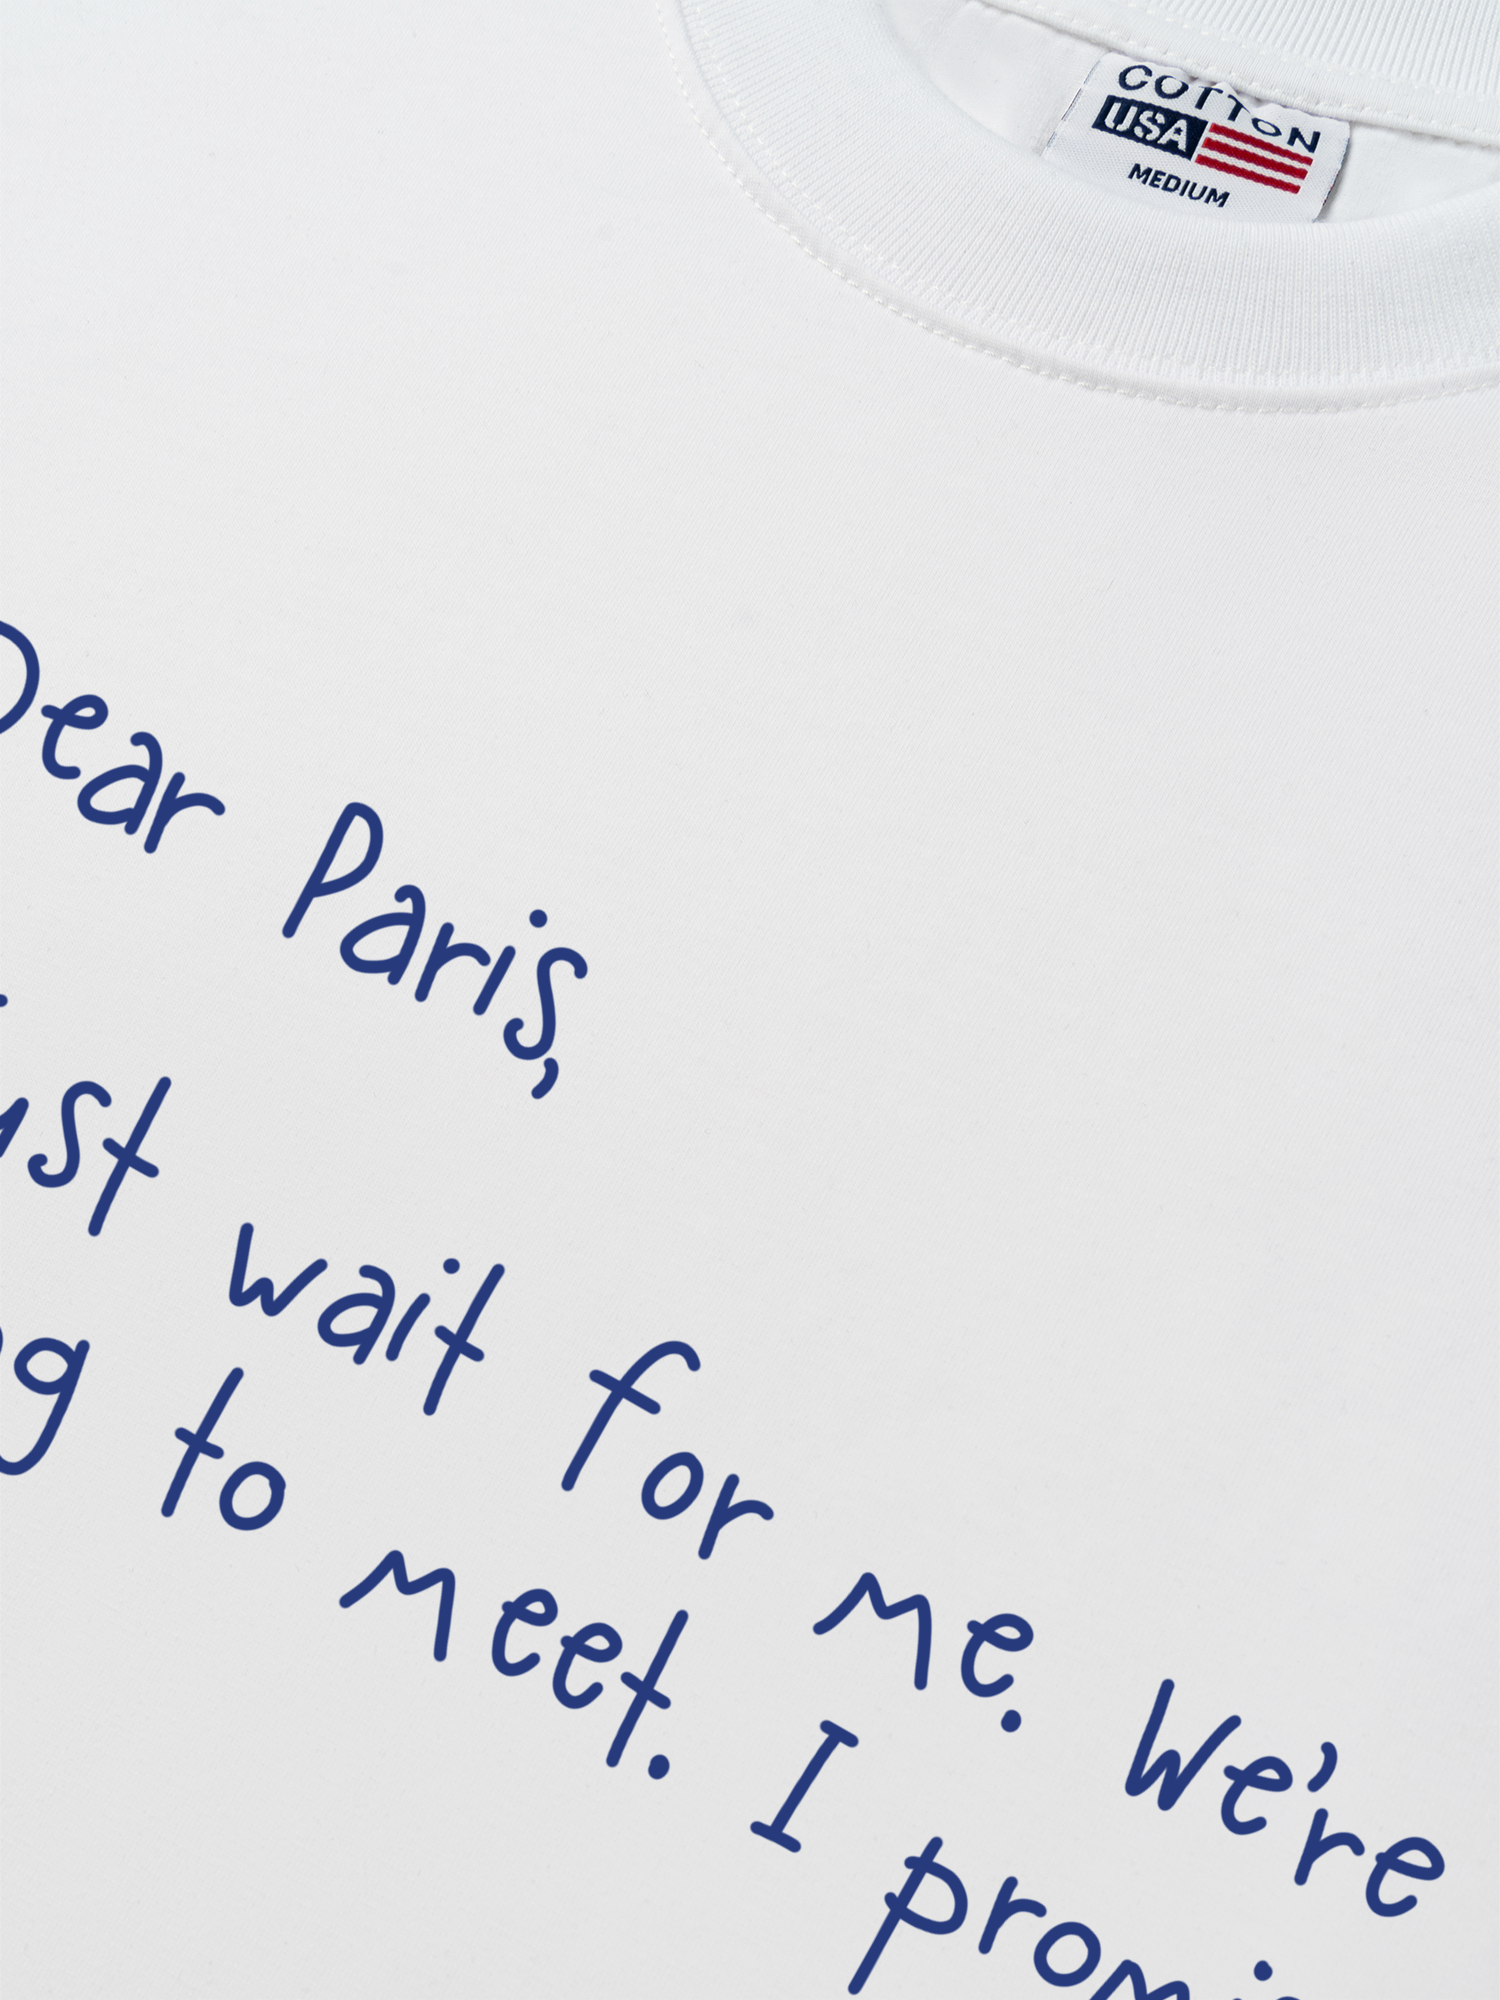 COTTON
USA
MEDIUM
Dear Paris,
Just wait for me. We're
to meet. I